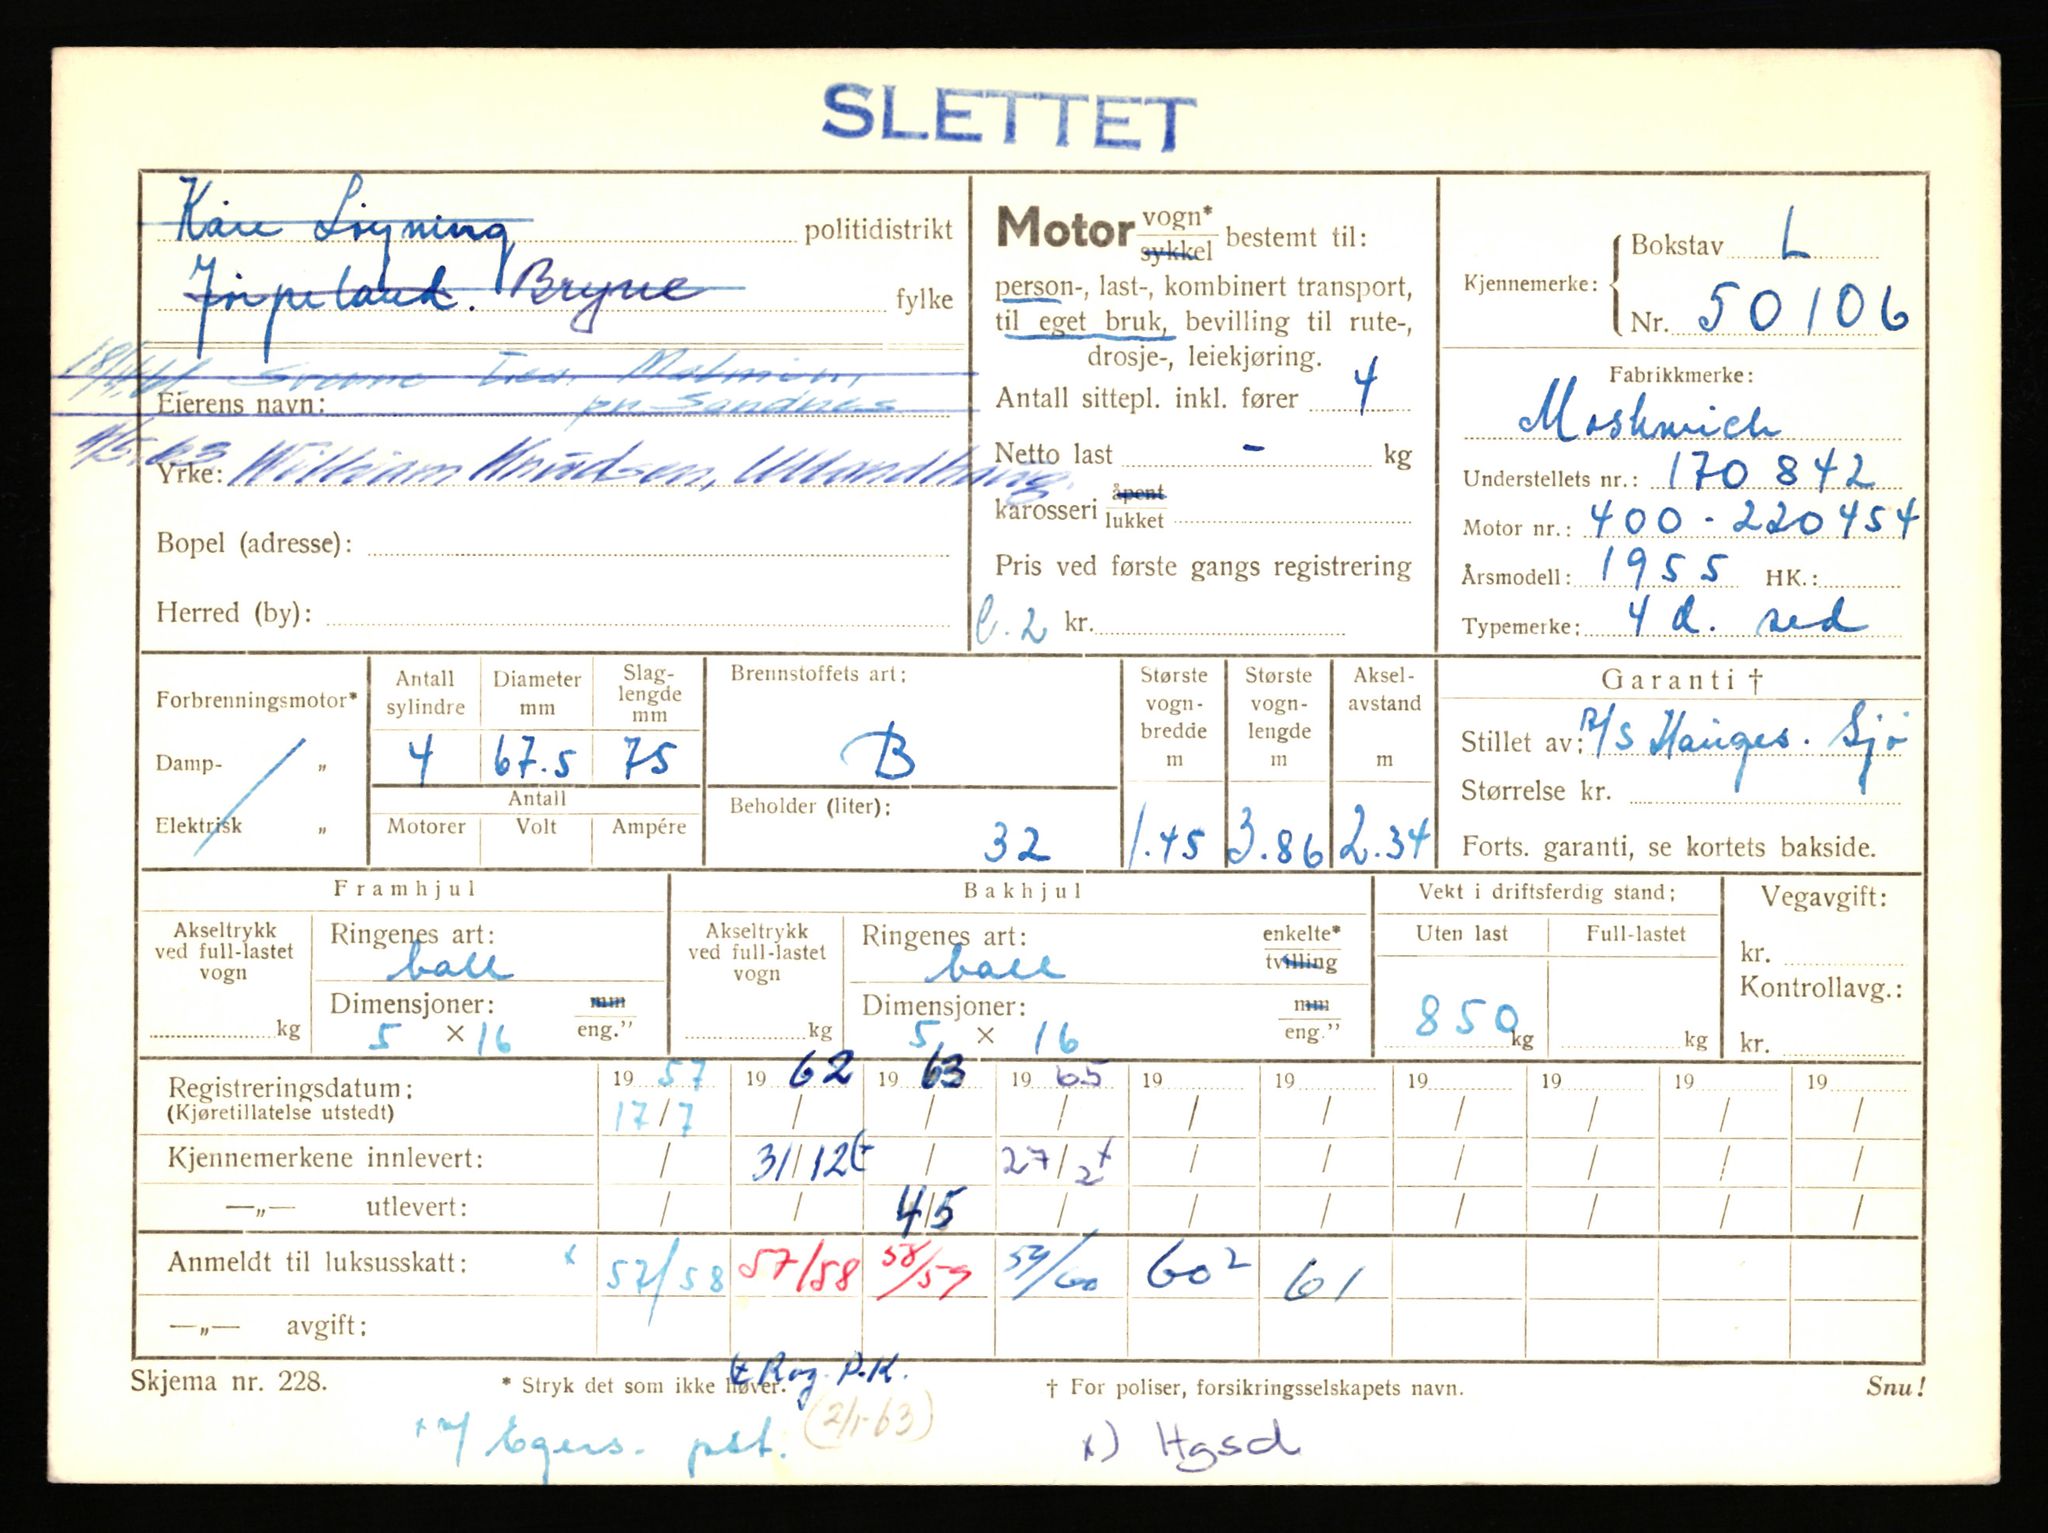 SLETTET
Kåre Løyning politidistrikt
Jørpeland. Bryne fylke
18/4.61 Sverre Malmin,
Eierens navn: pr Sandnes
4/5.63
Yrke: William Knudsen, Ullandhaug.
Bopel (adresse):
Herred (by):
Motor vogn* sykkel bestemt til:
person-, last-, kombinert transport,
til eget bruk, bevilling til rute-,
drosje-, leiekjøring.
Antall sittepl. inkl. fører 4
Netto last - kg
karosseri åpent lukket
Pris ved første gangs registrering
l. 2 kr.
Kjennemerke: Bokstav L
Nr. 50106
Fabrikkmerke:
Moskwich
Understellets nr.: 170 842
Motor nr.: 400-220454
Årsmodell: 1955 HK.:
Typemerke: 4 d. sed
Forbrenningsmotor*
Damp- „
Elektrisk „
Antall sylindre 4
Diameter mm 67.5
Slag-lengde mm 75
Antall
Motorer Volt Ampére
Brennstoffets art:
B
Beholder (liter):
32
Største vogn-bredde m 1.45
Største vogn-lengde m 3.86
Aksel-avstand m 2.34
Garanti †
Stillet av: A/S Hauges. Sjø
Størrelse kr.
Forts. garanti, se kortets bakside.
Framhjul
Akseltrykk ved full-lastet vogn
kg
Ringenes art:
ball
Dimensjoner: mm
5 × 16 eng.”
Bakhjul
Akseltrykk ved full-lastet vogn
kg
Ringenes art: enkelte*
ball tvilling
Dimensjoner: mm
5 × 16 eng.”
Vekt i driftsferdig stand:
Uten last Full-lastet
850 kg kg
Vegavgift:
kr.
Kontrollavg.:
kr.
Registreringsdatum: 19 57 19 62 19 63 19 65 19 19 19 19 19 19
(Kjøretillatelse utstedt) 17/7 / / / / / / / / /
Kjennemerkene innlevert: / 31/12 / 27/2 x / / / / / /
—„— utlevert: / / 4/5 / / / / / / /
Anmeldt til luksusskatt: x 57/58 57/58 58/59 59/60 60² 61
—„— avgift:
Skjema nr. 228. * Stryk det som ikke høver. Rog. P.K. † For poliser, forsikringsselskapets navn. Snu!
x Egers. pst. (2/1-63) x) Hgsd